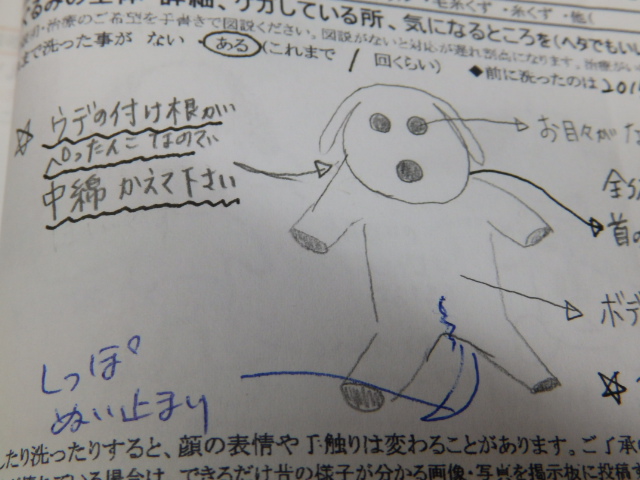 ・毛糸くず・糸くず・他(
るみの全体・詳細、ケガしている所、気になるところを(ヘタでもいい
・治療のご希望を手書きで図説ください。図説がないと対応が遅れ割高になります。治療が
まで洗った事が ない・ある(これまで 1 回くらい)
◆前に洗ったのは201
☆ ウデの付け根が
ぺったんこなのでい
中綿 かえて下さい
お目々が
首の
ボデ
☆
しっぽ
ぬい止まり
したり洗ったりすると、顔の表情や手触りは変わることがあります。ご了承
ている場合は、できるだけ昔の様子が分かる画像・写真を掲示板に投稿す